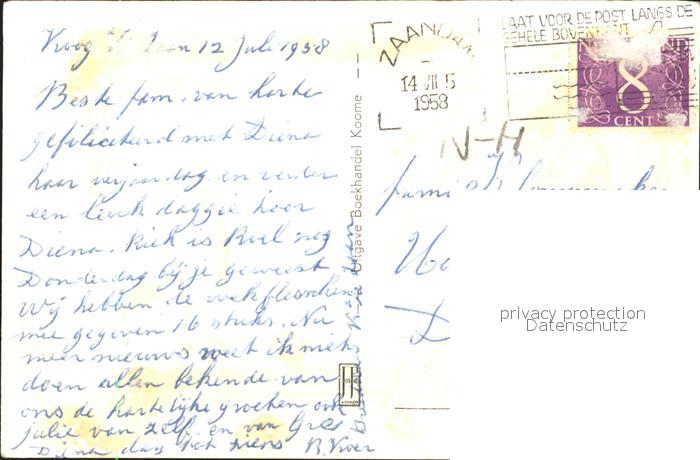 12 Juli 1958
Beste fam. van harte
gefiliciteerd met Diena
haar verjaardag en verder
een leuk daggie hoor
Diena. Riek is Roel nog
Donderdag bij je geweest
Wij hebben de wekflesschen
mee gegeven 16 stuks. Nu
meer nieuws weet ik niets
doen allen bekende van
ons de hartelijke groeten ook
julie van zelf en van Gree
Diena dag tot ziens B. Kroer
Uitgave Boekhandel Koome
ZAANDAM
14 VII 5
1958
LAAT VOOR DE POST LANGS DE
GEHELE BOVENKANT
8
CENT
N-H
privacy protection
Datenschutz